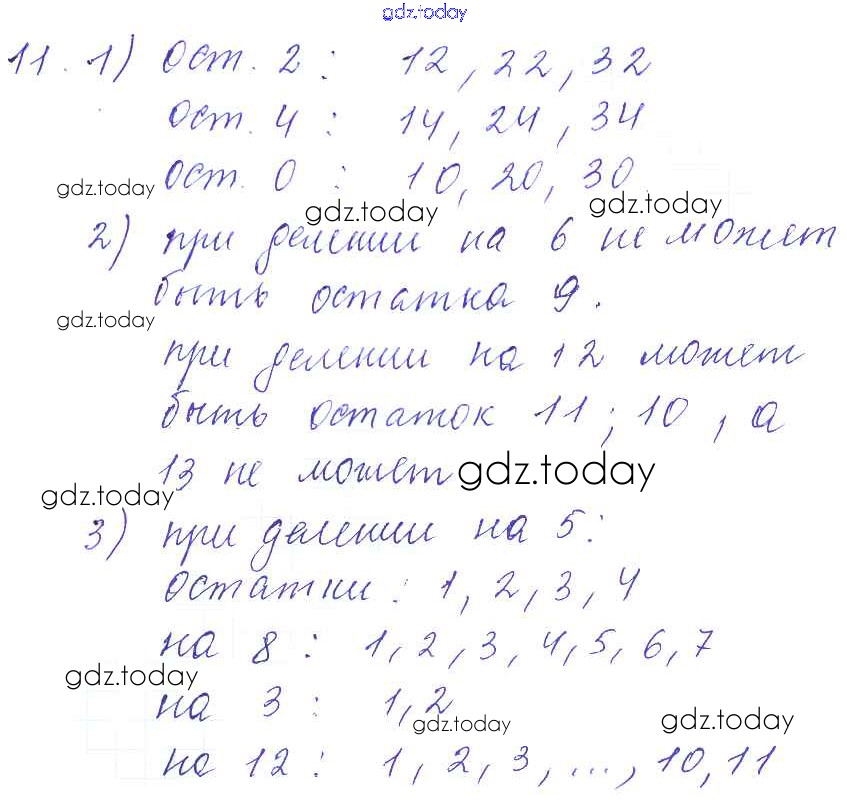 gdz.today
11. 1) ост. 2 : 12, 22, 32
ост. 4 : 14, 24, 34
ост. 0 : 10, 20, 30
gdz.today
gdz.today
gdz.today
2) при делении на 6 не может
быть остатка 9.
gdz.today
при делении на 12 может
быть остаток 11; 10, а
13 не может
gdz.today
gdz.today
3) при делении на 5:
остатки: 1, 2, 3, 4
на 8 : 1, 2, 3, 4, 5, 6, 7
gdz.today
на 3 : 1, 2
gdz.today
gdz.today
на 12 : 1, 2, 3, ..., 10, 11